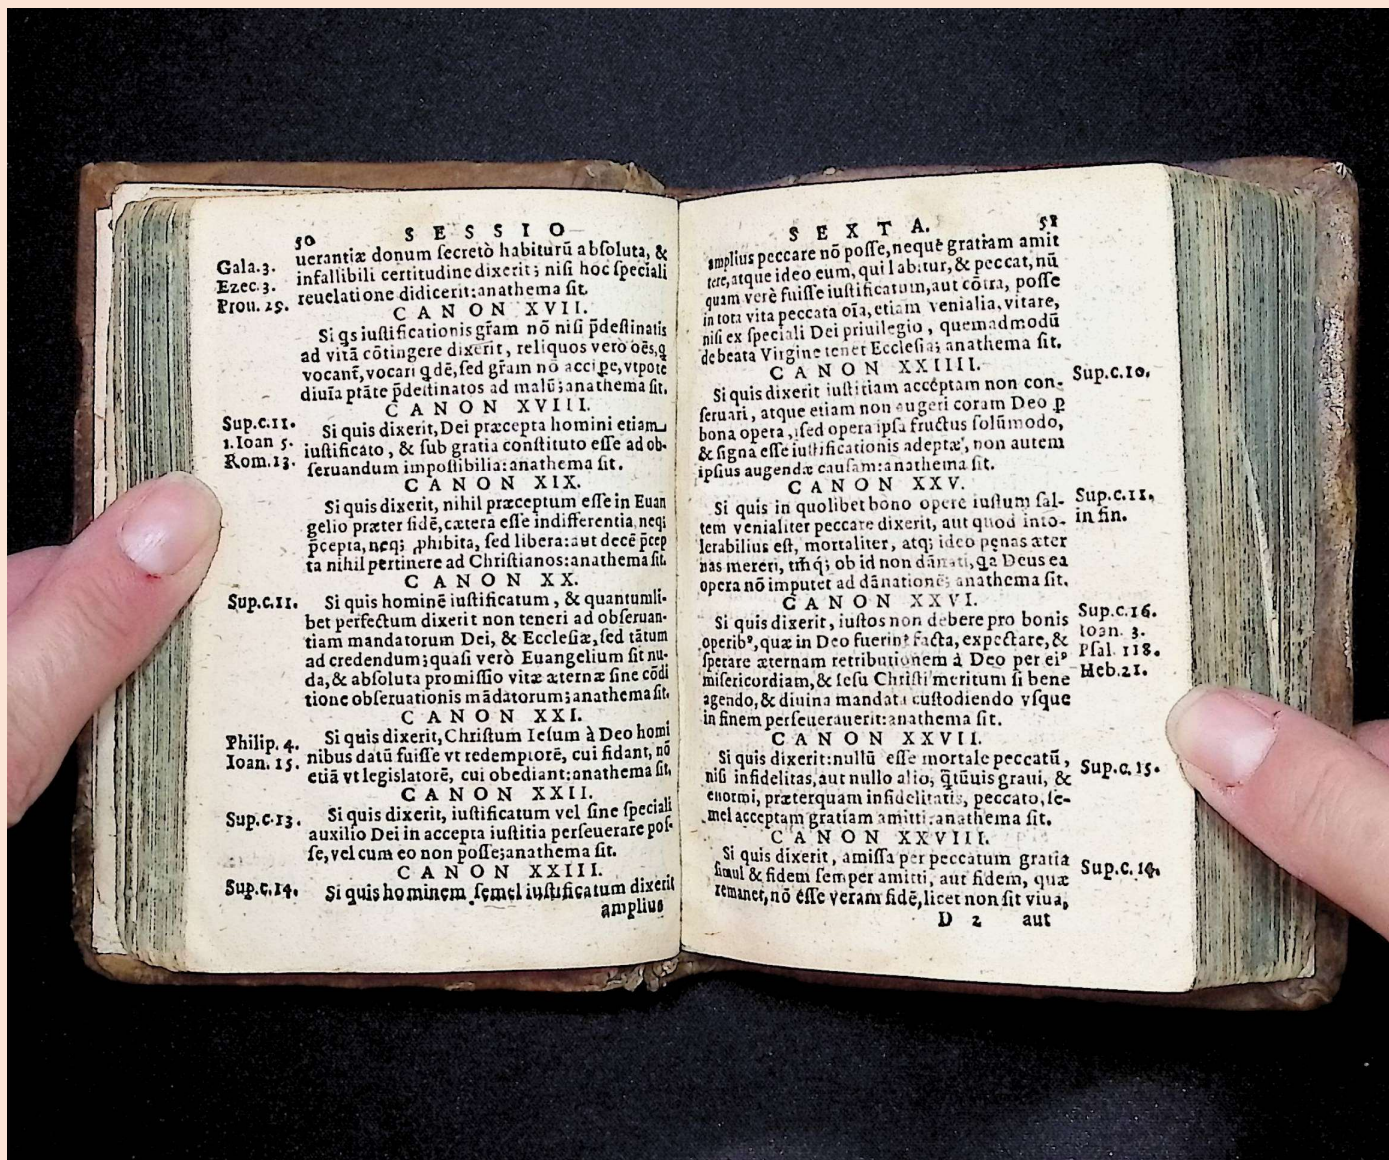 50 SESSIO
uerantiæ donum ſecretò habiturū abſoluta, &
Gala.3. infallibili certitudine dixerit; niſi hoc ſpeciali
Ezec.3.
Prou. 25. reuelatione didicerit:anathema ſit.
CANON XVII.
Si qs iuſtificationis gr̄am nō niſi p̄deſtinatis
ad vitā cōtingere dixerit, reliquos verò oēs,q
vocant̄, vocari qdē,ſed gr̄am nō accipe,vtpote
diuīa ptāte p̄deſtinatos ad malū;anathema ſit.
CANON XVIII.
Sup.c.11. Si quis dixerit,Dei præcepta homini etiam
1.Ioan 5. iuſtificato, & ſub gratia conſtituto eſſe ad ob-
Rom.13. ſeruandum impoſſibilia:anathema ſit.
CANON XIX.
Si quis dixerit, nihil præceptum eſſe in Euan
gelio præter fidē,cætera eſſe indifferentia,neqȝ
p̄cepta,neqȝ ꝓhibita, ſed libera:aut decē p̄cep
ta nihil pertinere ad Chriſtianos:anathema ſit.
CANON XX.
Sup.c.11. Si quis hominē iuſtificatum, & quantumli-
bet perfectum dixerit non teneri ad obſeruan-
tiam mandatorum Dei, & Eccleſiæ,ſed tātum
ad credendum;quaſi verò Euangelium ſit nu-
da,& abſoluta promiſſio vitæ æternæ ſine cōdi
tione obſeruationis mādatorum;anathema ſit.
CANON XXI.
Philip.4. Si quis dixerit,Chriſtum Ieſum à Deo homi
Ioan. 15. nibus datū fuiſſe vt redemptorē, cui fidant, nō
etiā vt legislatorē, cui obediant:anathema ſit.
CANON XXII.
Sup.c.13. Si quis dixerit, iuſtificatum vel ſine ſpeciali
auxilio Dei in accepta iuſtitia perſeuerare poſ-
ſe,vel cum eo non poſſe;anathema ſit.
CANON XXIII.
Sup.c.14. Si quis hominem ſemel iuſtificatum dixerit
amplius
SEXTA. 51
amplius peccare nō poſſe,neque gratiam amit
tere,atque ideo eum, qui labitur,& peccat,nū
quam verè fuiſſe iuſtificatum,aut cōtra, poſſe
in tota vita peccata oīa,etiam venialia,vitare,
niſi ex ſpeciali Dei priuilegio, quemadmodū
de beata Virgine tenet Eccleſia; anathema ſit.
CANON XXIIII.
Si quis dixerit iuſtitiam accéptam non con- Sup.c.10.
ſeruari, atque etiam non augeri coram Deo ꝑ
bona opera, ſed opera ipſa fructus ſolùmodo,
& ſigna eſſe iuſtificationis adeptæ, non autem
ipſius augendæ cauſam:anathema ſit.
CANON XXV.
Si quis in quolibet bono opere iuſtum ſal- Sup.c.11.
tem venialiter peccare dixerit, aut quod into- in fin.
lerabilius eſt, mortaliter, atqȝ ideo pęnas æter
nas mereri, tm̄qȝ ob id non dānati,qa Deus ea
opera nō imputet ad dānationē; anathema ſit.
CANON XXVI.
Si quis dixerit, iuſtos non debere pro bonis Sup.c.16.
operibꝰ,quæ in Deo fuerint facta, expectare,& Ioan. 3.
ſperare æternam retributionem à Deo per eiꝰ Pſal. 118.
miſericordiam,& Ieſu Chriſti meritum ſi bene Heb.21.
agendo,& diuina mandata cuſtodiendo vſque
in finem perſeuerauerit:anathema ſit.
CANON XXVII.
Si quis dixerit:nullū eſſe mortale peccatū, Sup.c.15.
niſi infidelitas,aut nullo alio, q̄tūuis graui, &
enormi, præterquam infidelitatis, peccato,ſe-
mel acceptam gratiam amitti:anathema ſit.
CANON XXVIII.
Si quis dixerit, amiſſa per peccatum gratia Sup.c.14.
ſimul & fidem ſemper amitti, aut fidem, quæ
remanet,nō eſſe veram fidē,licet non ſit viua,
D 2 aut